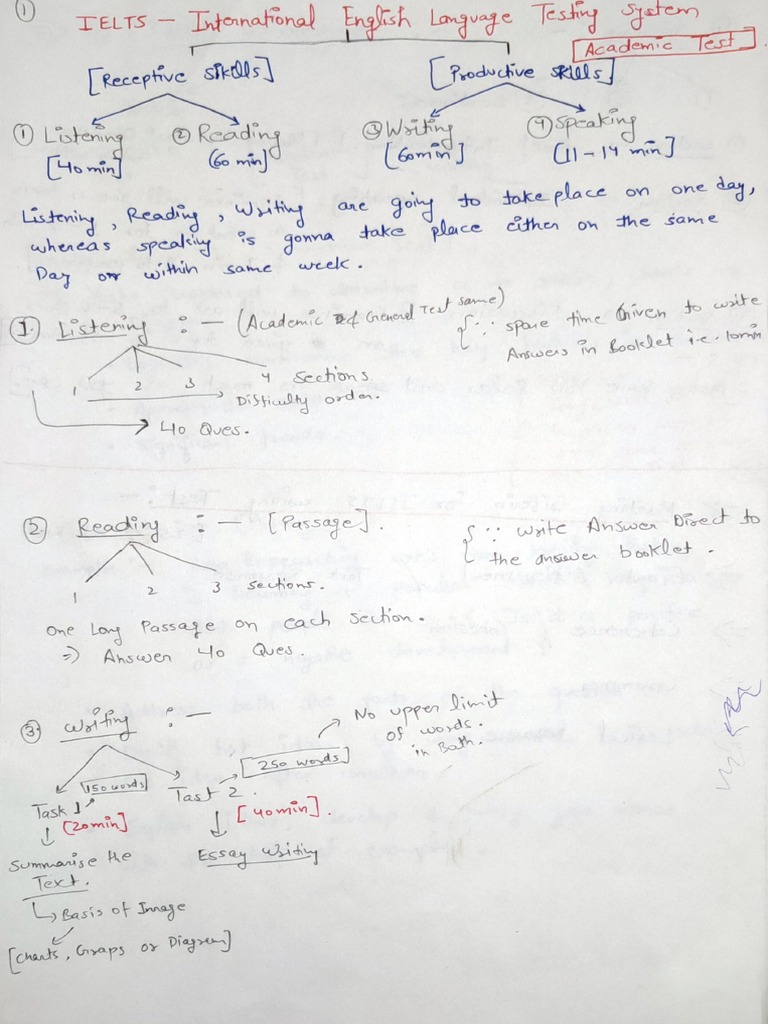 ①
IELTS – International English Language Testing System
Academic Test.
[Receptive Skills] [Productive skills]
① Listening ② Reading ③ Writing ④ Speaking
[40 min] (60 min) [60min] [11 – 14 min]
Listening, Reading, Writing are going to take place on one day,
whereas speaking is gonna take place either on the same
Day or within same week.
①. Listening :— (Academic & General Test same)
{∵ spare time Given to write
Answers in Booklet i.e. 10min
1 2 3 4 Sections
Difficulty order.
→ 40 Ques.
② Reading :— [Passage].
{∵ write Answer Direct to
the answer booklet.
1 2 3 sections.
One Long Passage on each section.
⇒ Answer 40 Ques.
③ Writing :—
No upper limit
of words.
in Both.
[150 words] [250 words]
Task 1 Tast 2.
[20min] [40min].
Summarise the Essay Writing
Text.
↳ Basis of Image
[Charts, Graps or Diagram]